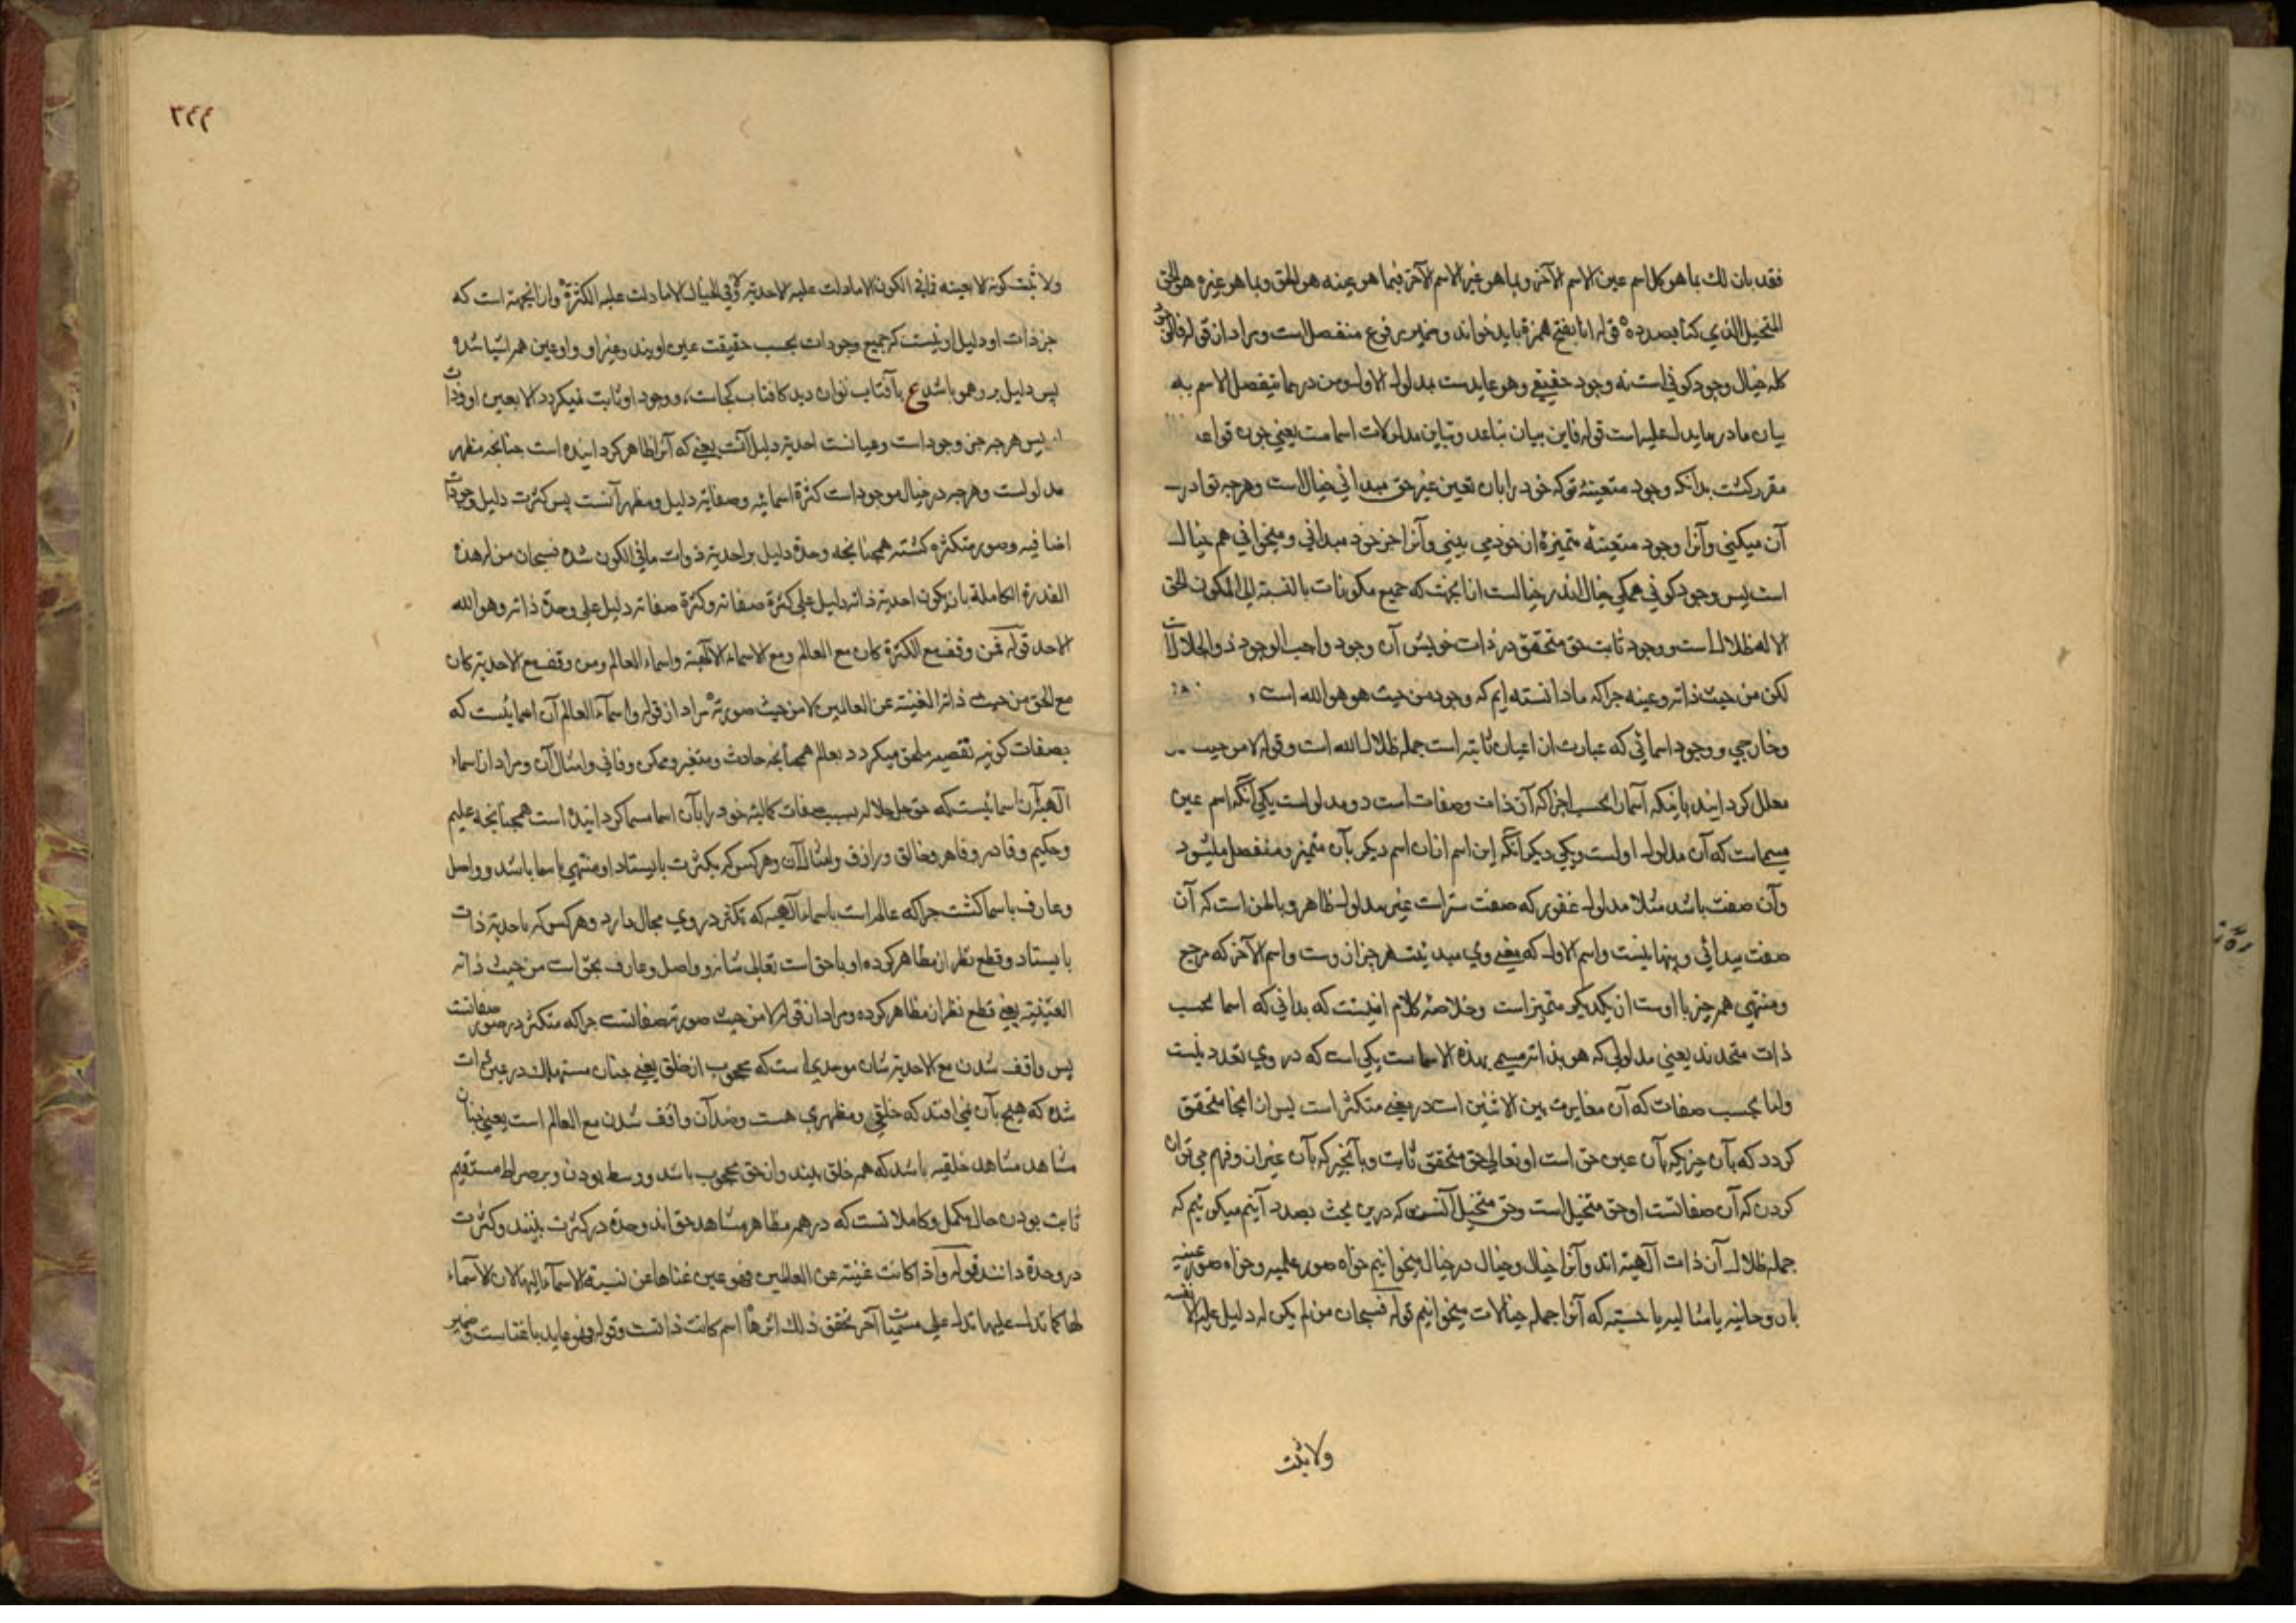 فقد بان لك بما هو كل اسم عين الاسم الآخر وبما هو غير الاسم الآخر فبما هو عينه هو الحق وبما هو غيره هو الحق
المتخيل الذي كنا بصدده قوله انا بفتح همزه بايد خواند وضمير مرفوع منفصل است ومراد از قوله فالكون
كله خيال وجود كوني است نه وجود حقيقي وهو عايد ست بمدلول الاول ومن در مما يتفصل الاسم به
بيان ما در ما يدل عليه است قوله فاين بيان تباعد وتباين مدلولات اسما ست يعني چون قواعد
مقرر كشت بدانكه وجود متعينهٔ تو كه خود را بآن تعين غير حق ميداني خيال است وهرچه تو ادر
آن ميكني وآنرا وجود متعينهٔ متميزهٔ از خود مي بيني وآنرا جز خود ميداني وميخواني هم خيال
است پس وجود كوني همكي خيال اندر خيالست از آنجهت كه جميع مكونات بالنسبة الي المكون الحق
الا له ظلال است ووجود ثابت حق متحقق در ذات خويش آن وجود واجب الوجود ذو الجلال است
لكن من حيث ذاته وعينه چراكه ما دانسته ايم كه وجود من حيث هو هو الله است
وخارجي ووجود اسمائي كه عبارت از اعيان ثابته است جمله ظلال الله است وقوله لا من حيث
معلل كردانيد بانكه آسما را بحسب اجزا كه آن ذات وصفات است دو مدلول است يكي آنكه اسم عين
مسماست كه آن مدلول اولست ويكي ديكر آنكه اين اسم از آن اسم ديكر بآن متميز ومنفصل ميشود
وآن صفت باشد مثلا مدلول غفور كه صفت ستر است غير مدلول ظاهر وباطن است كه آن
صفت پيدائي وپنهانيست واسم الاول كه يعني وي مبدئيت هر چيز از وست واسم الآخر كه مرجع
ومنتهي هر چيز با اوست از يكديكر متميز است وخلاصهٔ كلام اينست كه بداني كه اسما بحسب
ذات متحدند يعني مدلولي كه هو بذاته مسمي بهذه الاسما ست يكي است كه در وي تعدد نيست
واما بحسب صفات كه آن مغايرت بين الاثنين است در معني متكثر است پس از انجا متحقق
كردد كه بآن چيزيكه بآن عين حق است او تعالي حق متحقق ثابت وبآنچيز كه بآن غير آن وفهم مي توان
كردن كه آن صفاتست او حق متخيل است وحق متخيل آنست كه درين بحث بصدد آنيم ميكوئيم كه
جمله ظلال آن ذات آلهيه اند وآنرا خيال وخيال در خيال ميخوانيم خواه صور علميه وخواه صور عينيه
يا روحانيه يا مثاليه يا حسيه كه آنرا جمله خيالات ميخوانيم قوله فسبحان من لم يكن له دليل عليه الا نفسه
ولا يثبت
٣٤٤
ولا ثبت كونه الا بعينه فما في الكون الا ما دلت عليه الاحدية وما في الخيال الا ما دلت عليه الكثرة وازانجهة است كه
جز ذات او دليل او نيست كه جميع وجودات بحسب حقيقت عين اويند وغير او واو عين همه اشيا شده
پس دليل بر وهمو باشد ع بآفتاب توان ديد كافتاب كجاست، ووجود او ثابت نميكردد الا بعين او وذات
او پس هرچه جز وجود است وعيانست احديه دليل آنست يعني كه آنرا ظاهر كردانيده است چنانچه مظهر
مدلولست وهرچه در خيال موجود است كثرة اسمائيه وصفاتيه دليل ومظهر آنست پس كثرت دليل وجودات
اضافيه وصور متكثره كشته همچنانچه وحدة دليل بر احدية ذوات ما في الكون شده فسبحان من له هذه
القدرة الكاملة بان يكون احدية ذاته دليل علي كثرة صفاته وكثرة صفاته دليل علي وحدة ذاته وهو الله
الاحد قوله فمن وقف مع الكثرة كان مع العالم ومع الاسماء الآلهية واسماء العالم ومن وقف مع الاحدية كان
مع الحق من حيث ذاته الغنية عن العالمين لا من حيث صورته مراد از قوله واسماء العالم آن اسمائيست كه
بصفات كونيه تقصير ملحق ميكردد بعالم همچنانچه حادث ومتغير وممكن وفاني وامثال آن ومراد از اسماء
آلهيه آن اسمائيست كه حق جل جلاله بسبب صفات كماليه خود را بآن اسما مسما كردانيده است همچنانچه عليم
وحكيم وقادر وقاهر وخالق ورازق وامثال آن وهر كس كه بكثرت بايستاد او منتهي باسما باشد وواصل
وعارف باسما كشت چراكه عالم است باسماء آلهيه كه تكثر در وي مجال دارد وهر كس كه باحدية ذات
بايستاد وقطع نظر از مظاهر كرده او با حق است تعالي شانه وواصل وعارف بحق است من حيث ذاته
الغنية يعني قطع نظر از مظاهر كرده ومراد از قوله لا من حيث صورته صفاتست چراكه متكثر در صور صفاتست
پس واقف شدن مع الاحدية شان موحديست كه محجوب از خلق يعني چنان مستهلك در عين ذات
شده كه هيچ بآن نمي افتد كه خلقي ومظهري هست وضد آن واقف شدن مع العالم است يعني چنان
مشاهد مشاهد خلقيه باشد كه همه خلق بيند واز حق محجوب باشد ووسط بودن وبر صراط مستقيم
ثابت بودن حال مكمل وكاملانست كه در همه مظاهر مشاهد حق اند وحدة در كثرت بينند وكثرت
در وحدة دانند قوله واذا كانت غنية عن العالمين فهو عين غناها عن نسبة الاسماء اليها لان الاسماء
لها كما تدل عليها تدل علي مسميات آخر تحقق ذلك اثرها اسم كانت ذاتست وقوله فهو عايد باغناست وضمير